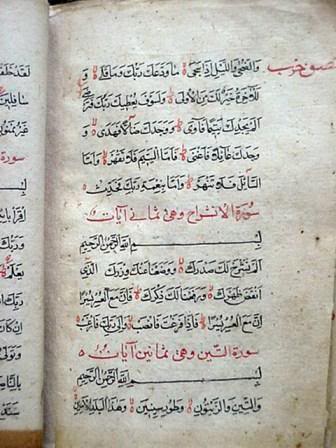 نصف حزب
والضحى والليل اذا سجى ما ودعك ربك وما قلى و
للاخرة خير لك من الاولى ولسوف يعطيك ربك فترضى
الم يجدك يتيما فآوى ووجدك ضالا فهدى و
وجدك عائلا فاغنى فاما اليتيم فلا تقهر واما
السائل فلا تنهر واما بنعمة ربك فحدث
سورة الانشراح وهي ثماني آيات
بسم الله الرحمن الرحيم
الم نشرح لك صدرك ووضعنا عنك وزرك الذي
انقض ظهرك ورفعنا لك ذكرك فان مع العسر يسرا
ان مع العسر يسرا فاذا فرغت فانصب والى ربك فارغب
سورة التين وهي ثمانين آيات
بسم الله الرحمن الرحيم
والتين والزيتون وطور سينين وهذا البلد الامين
لقد خلقنا
سافلين
سورة
اقرا باسم
وربك